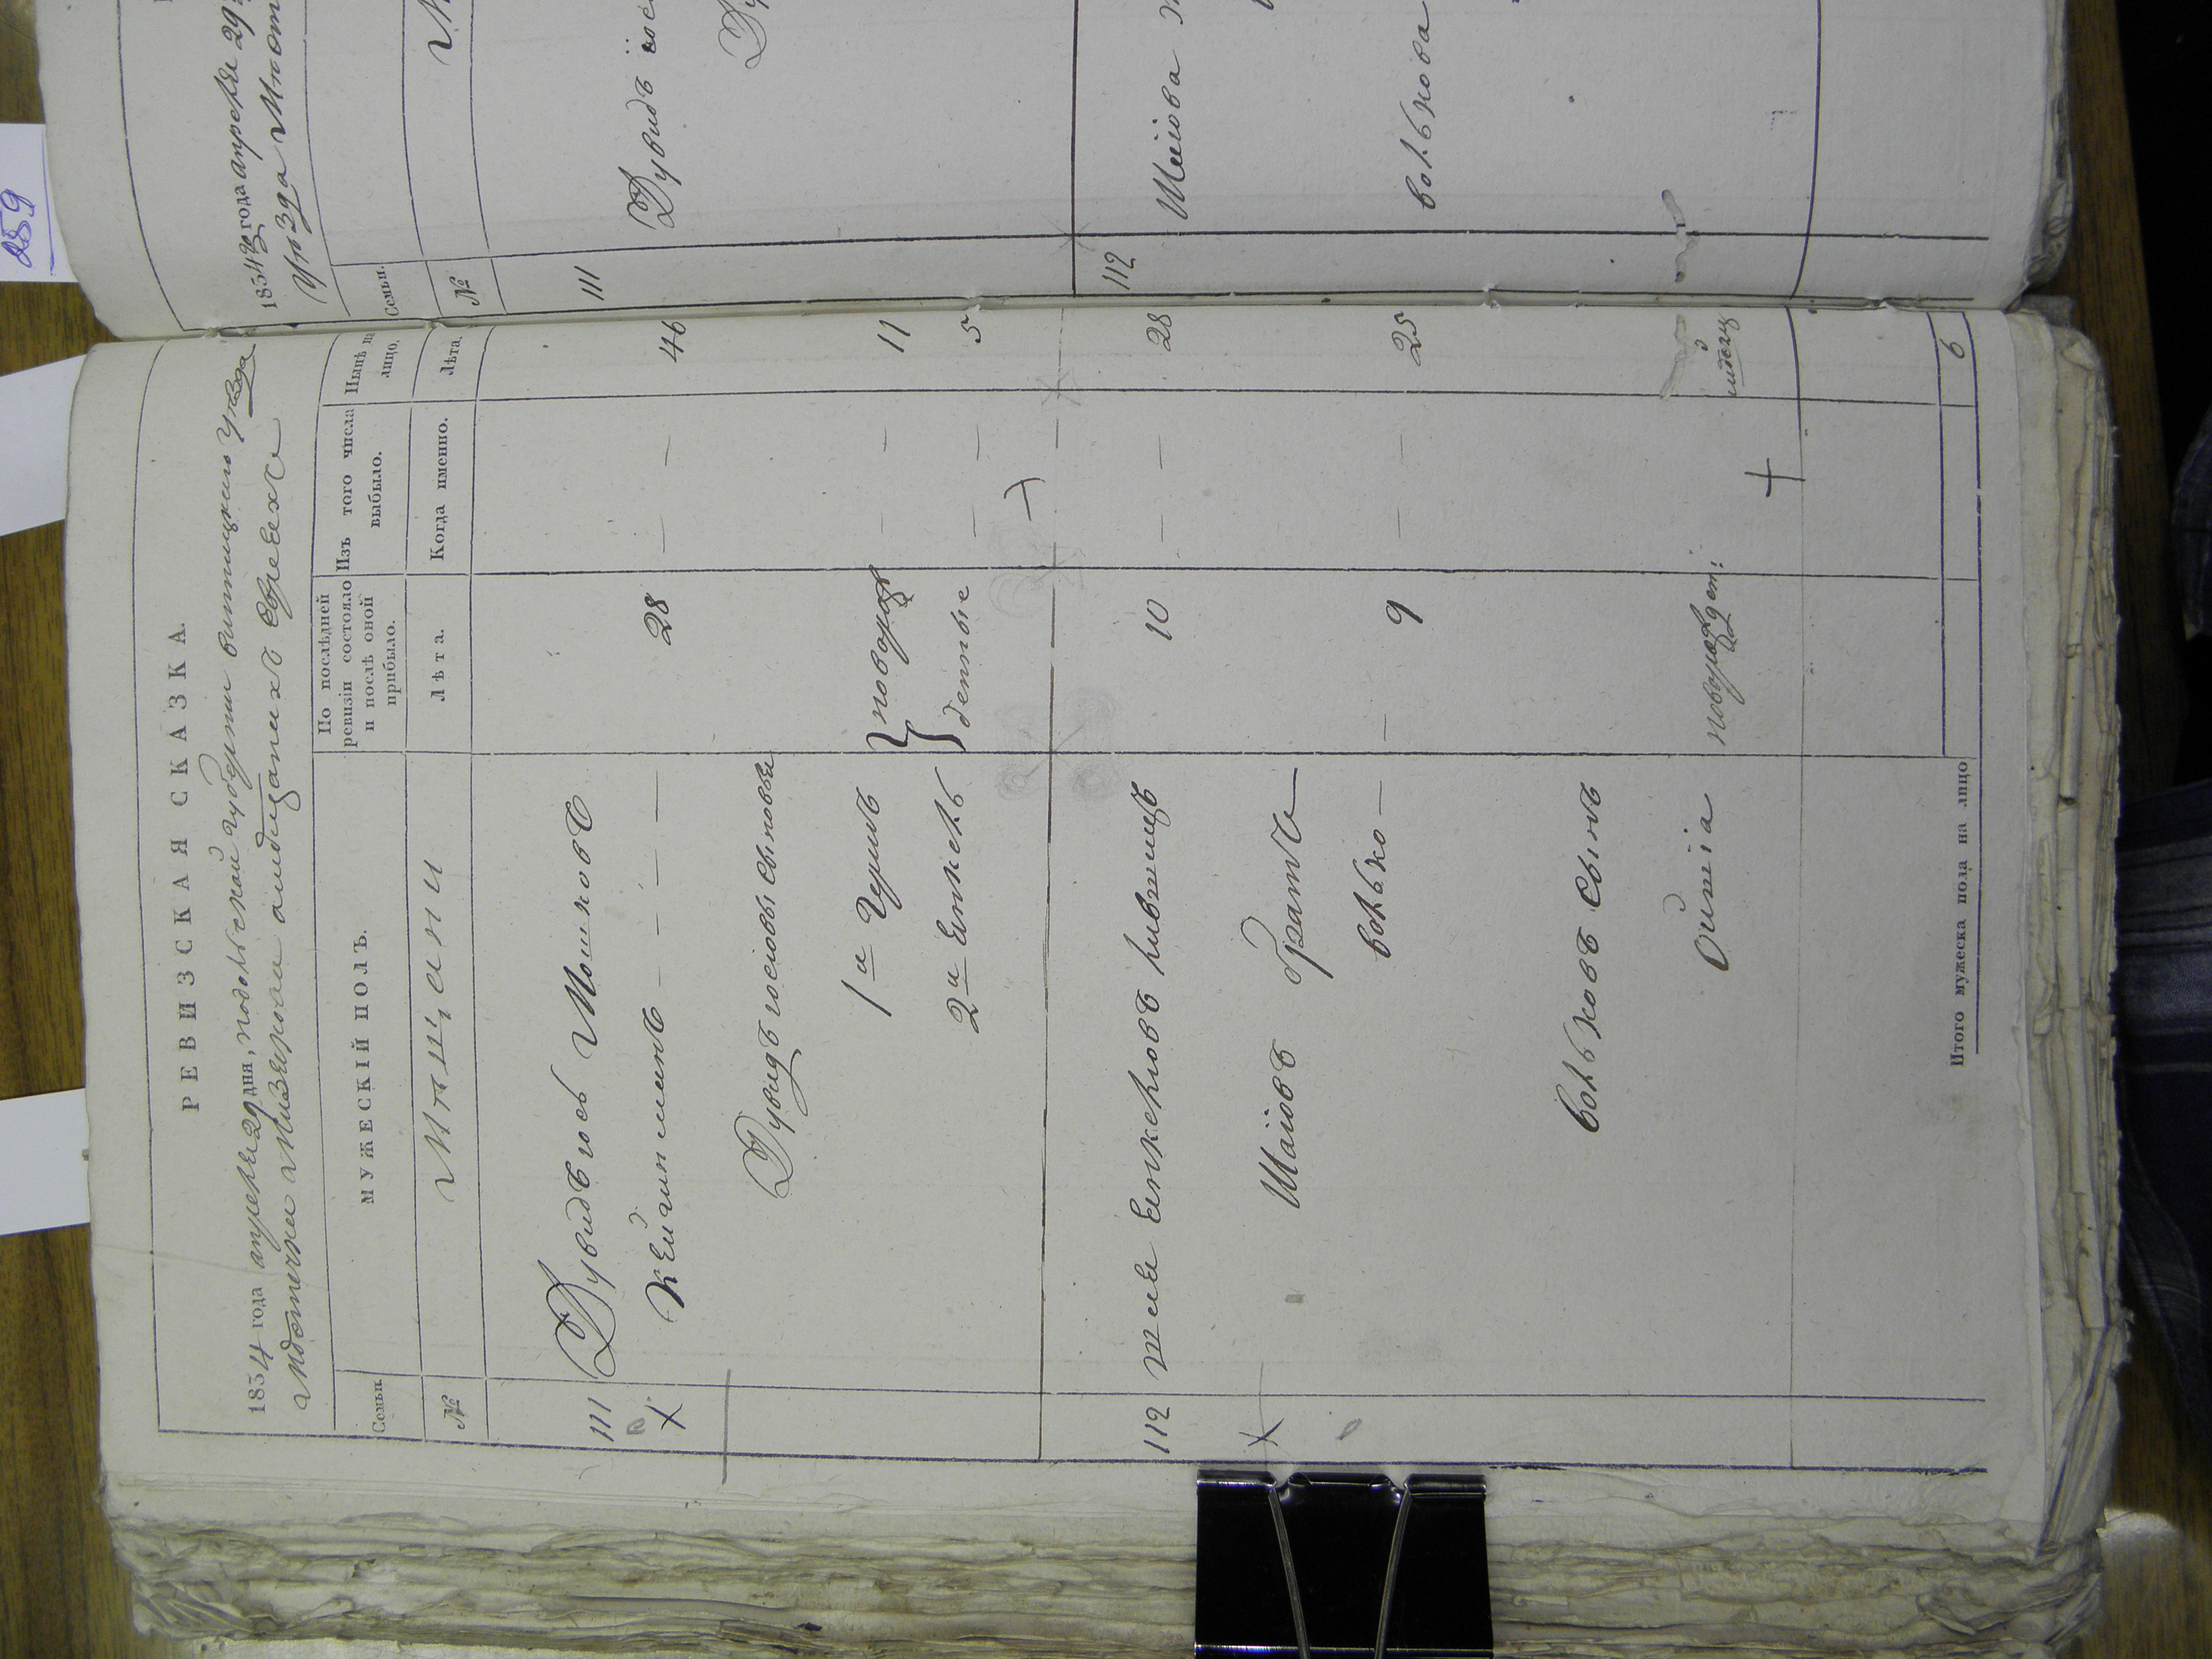 РЕВИЗСКАЯ СКАЗКА.
1834 года апреля 29 дня, подольской губернии винницкого уезда
местечка о мещанах Евреях
Семьи.
МУЖЕСКІЙ ПОЛЪ.
По послѣдней ревизіи состояло и послѣ оной прибыло.
Изъ того числа выбыло.
Нынѣ на лицо.
№
Мѣщани
Лѣта.
Когда именно.
Лѣта.
111
Дувидъ Іось Мошковъ
28 — — 46
Х
— — — —
Дувидъ Іосіовы Сыновья
1й Герш
} новорож
— — 11
2й Енкель
денные
— — 5
112 Шая Енкеліовъ Лившицъ
10 — — 28
Х
Шаіовъ Братъ
Волько —
— 9 — — 25
Вольковъ Сынъ
новорожден:
Итого мужеска пола на лицо
6
259
1834го года апреля 29
Уѣзда
Семьи.
№
111
Дувидъ
112
Шаіова
Волькова